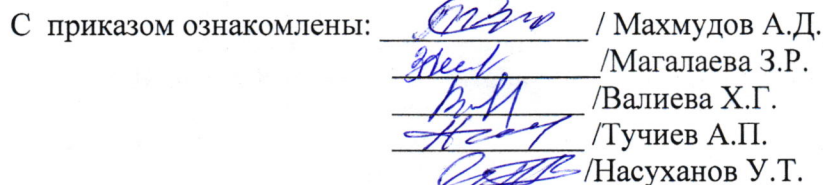 С приказом ознакомлены: / Махмудов А.Д.
/Магалаева З.Р.
/Валиева Х.Г.
/Тучиев А.П.
/Насуханов У.Т.